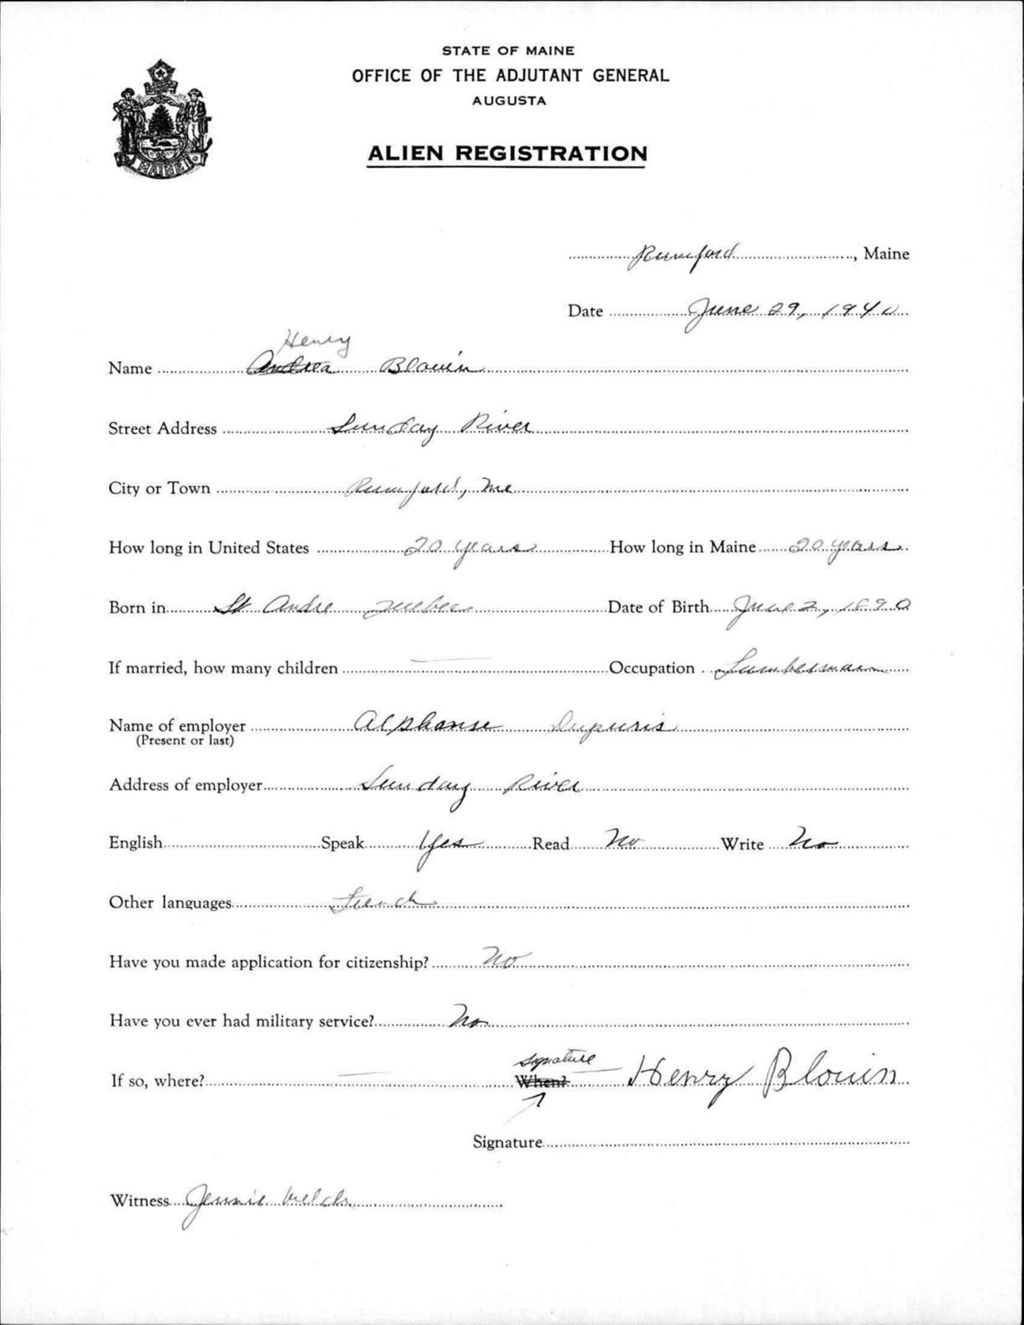 STATE OF MAINE
OFFICE OF THE ADJUTANT GENERAL
AUGUSTA
ALIEN REGISTRATION
MAINE
Rumford, Maine
Date June 29, 1940
Henry
Name Andrea Blouin
Street Address Sunday River
City or Town Rumford, Me
How long in United States 20 years How long in Maine 20 years
Born in St Andre Quebec Date of Birth June 2, 1890
If married, how many children — Occupation Lumberman
Name of employer Alphonse Dupuris
(Present or last)
Address of employer Sunday River
English Speak Yes Read No Write No
Other languages French
Have you made application for citizenship? No
Have you ever had military service? No
signature
If so, where? — When? Henry Blouin
Signature
Witness Jennie Welch